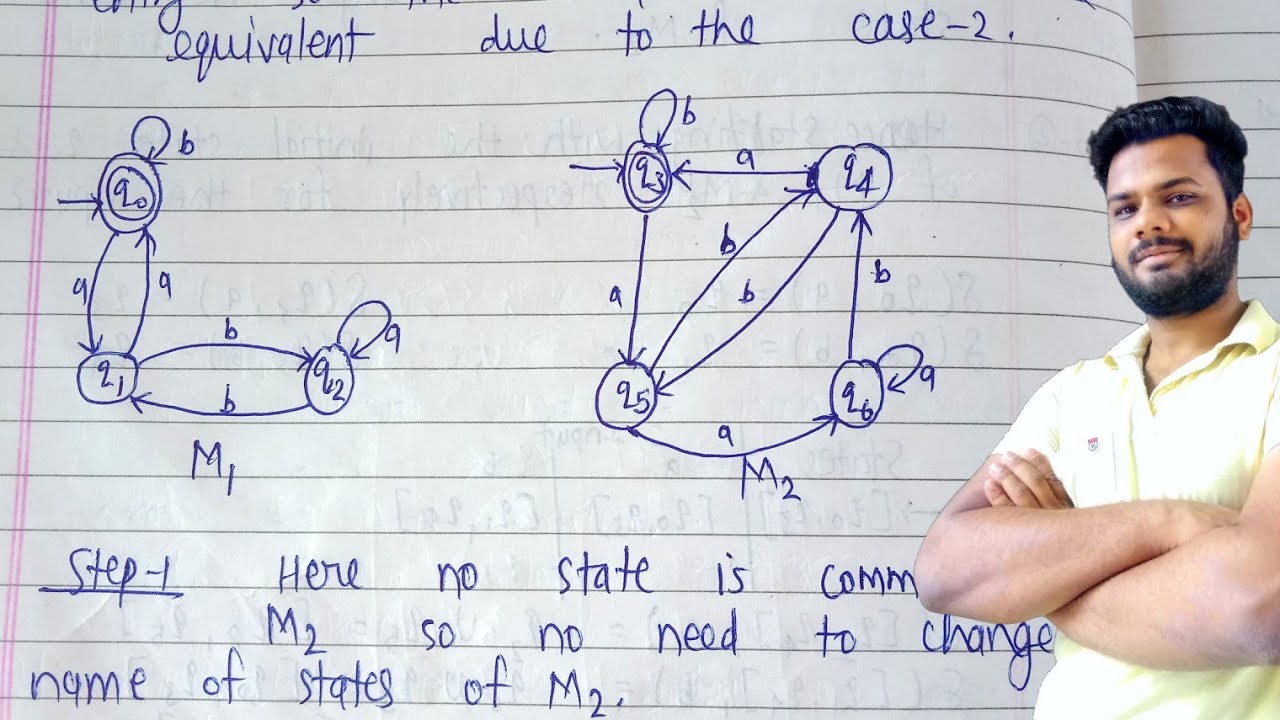 equivalent due to the case-2.
b
q0
a a
q1
b
b
q2
a
M1
b
q3
a
q4
a
b
b
b
q5
a
q6
a
M2
Step-1 Here no state is comm
M2 so no need to change
name of states of M2.